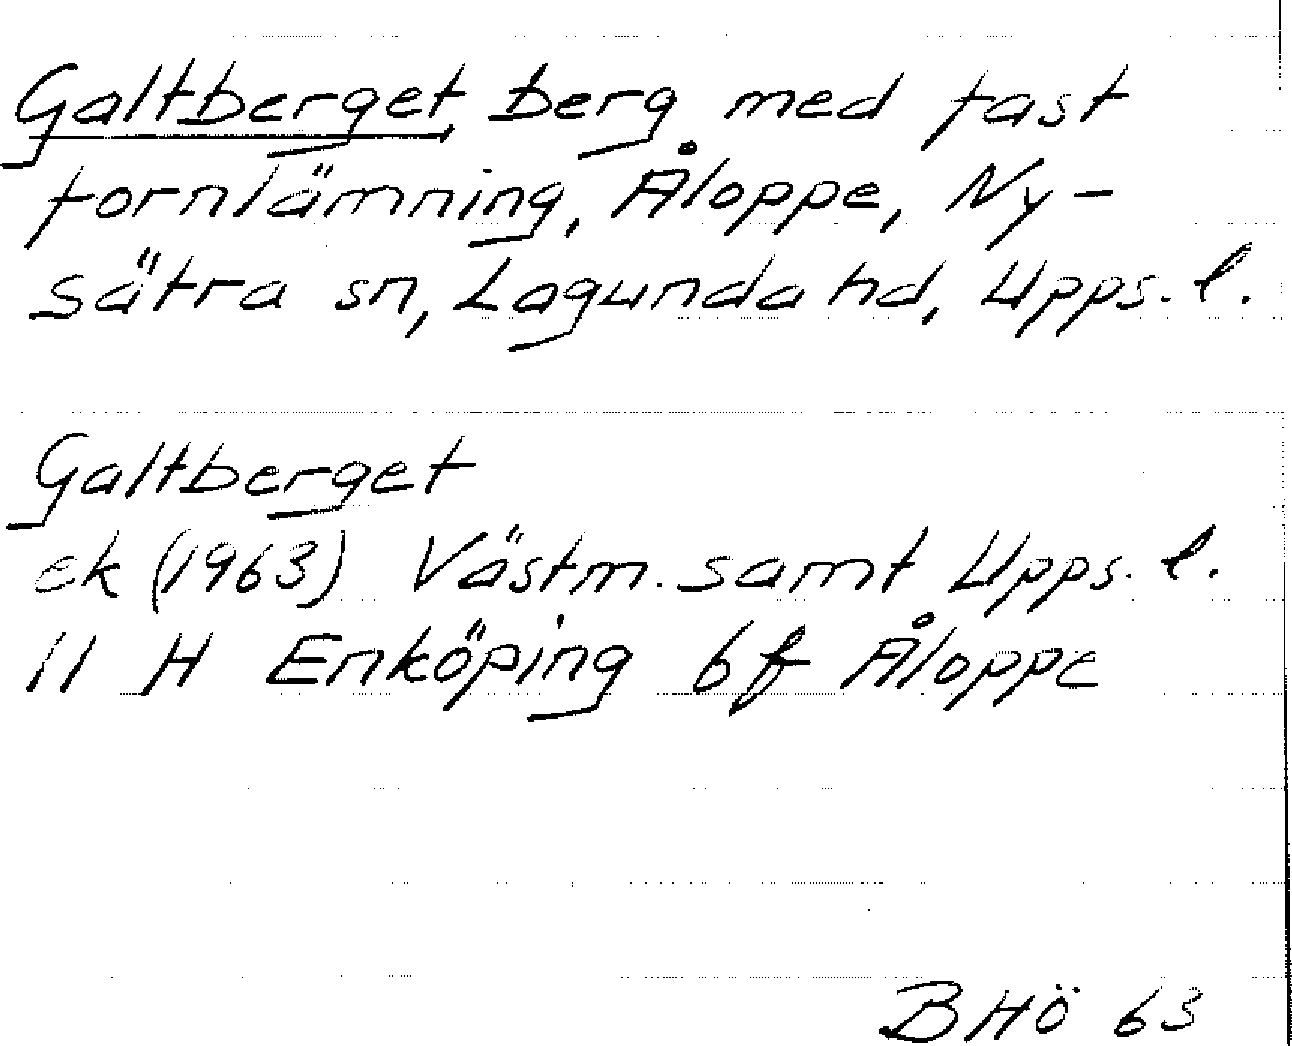 Galtberget, berg med fast
fornlämning, Åloppe, Ny-
sätra sn, Lagunda hd, Upps. l.
Galtberget
ek (1963) Västm. samt Upps. l.
11 H Enköping 6f Åloppe
BHÖ 63